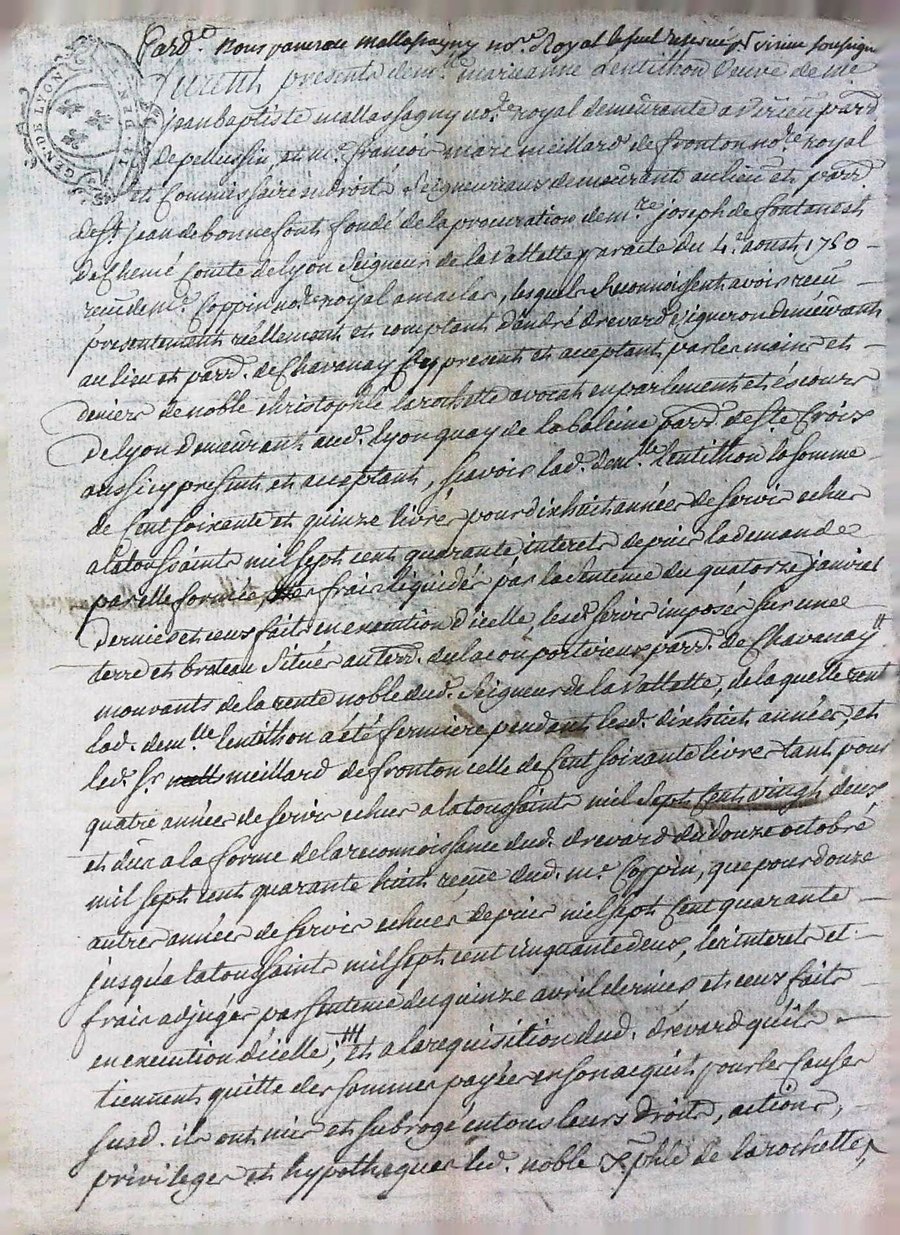 GEN. DE LYON
Pard.t Nous paneraie mallassagny no.re Royal soussigné
Furent presents dem.lle marieanne Lentithon veuve de me
jean baptiste mallassagny no.re royal demeurante a virieu parr.
de pellussin, et m.e françois marie meillard de fronton no.re royal
et Commissaire en droits Seigneuriaux demeurant au lieu et parr.
de S.t jean de bonnefont fondé de la procuration de m.re joseph de fontanest
de Chemé Comte de lyon Seigneur de la Vallette par acte du 4.e aoust 1750 –
receu de m.e Coppin no.re royal a maclas, lesquels Reconnoissent avoir receu
présentement réellement et comptant d'andré drevard Vigneron demeurant
au lieu et parr. de Chavanay icy present et acceptant par les mains et –
deniers de noble christophle larochette avocat en parlement et és cours
de lyon demeurant aud. lyon quay de la baleine parr. de Ste Croix
aussi icy present et acceptant, sçavoir lad. dem.lle Lentithon la somme
de Cent soixante et quinze livres pour dix huit années de servis echus
a la toussaints mil sept cent quarante interets depuis la demande
par elle formée, frais liquidés par la sentence du quatorze janvier
dernier et ceux faits en execution d'icelle, lesd. servis imposés sur une
terre et broteau situés au terr. de parr. de Chavanay
mouvants de la rente noble dud. Seigneur de la Vallette, de laquelle rente
lad. dem.lle lentithon a été fermiere pendant lesd. dix huit années, et
led. Sr meillard de fronton celle de Cent soixante livres tant pour
quatre années de servis echus a la toussaints mil Sept Cent vingt deux
et dûs a la forme de la reconnoissance dud. drevard du douze octobre
mil sept cent quarante huit reçue dud. m.e Coppin, que pour douze
autres années de servis echues depuis mil sept Cent quarante –
jusqu'a la toussaints mil sept cent cinquante deux, les interets et –
frais adjugés par sentence du quinze avril dernier et ceux faits –
en execution d'icelle; et a la requisition dud. drevard qu'ils –
tiennent quitte des sommes payées en son acquit pour les causes
susd. ils ont mis et subrogé en tous leurs droits, actions,
privileges et hypotheques led. noble Xphle de larochette,